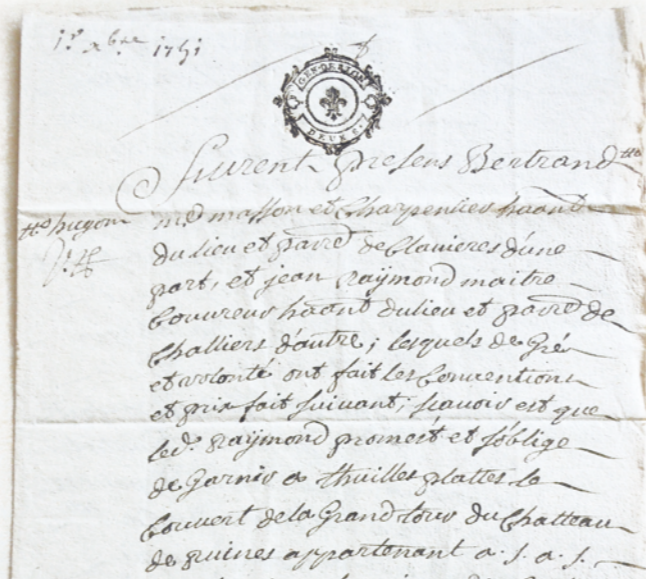 1r xbre 1751
GEN. DE RIOM
DEUX S.
Furent presens Bertrand
md masson et Charpentier haant
du lieu et parre de Clavieres d'une
part, et jean Raÿmond maitre
Couvreur haant du lieu et parre de
Challiers d'autre; lesquels de Gré
et volonté ont fait les Conventions
et prix fait suivant; scavoir est que
led. Raÿmond promet et s'oblige
de Garnir a thuilles plattes le
Couvert de la Grand tour du Chatteau
de ruines appartenant a. s. a. s.